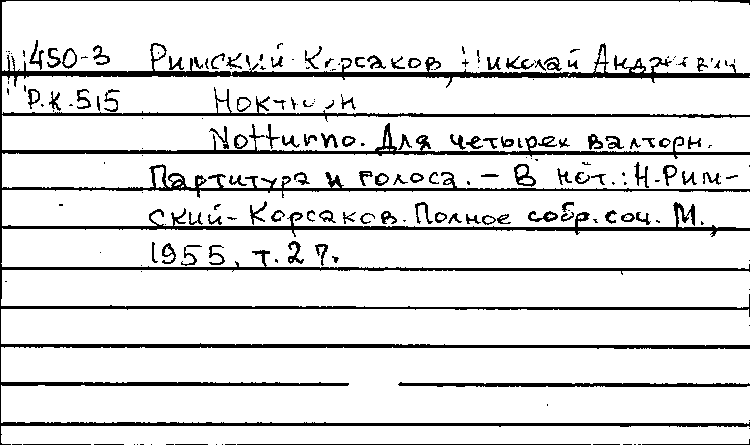 450-3 Римский-Корсаков, Николай Андреевич
Р.К.515 Ноктюрн
Notturno. Для четырех валторн.
Партитура и голоса. — В нот.: Н. Рим-
ский-Корсаков. Полное собр. соч. М.,
1955, т. 27.